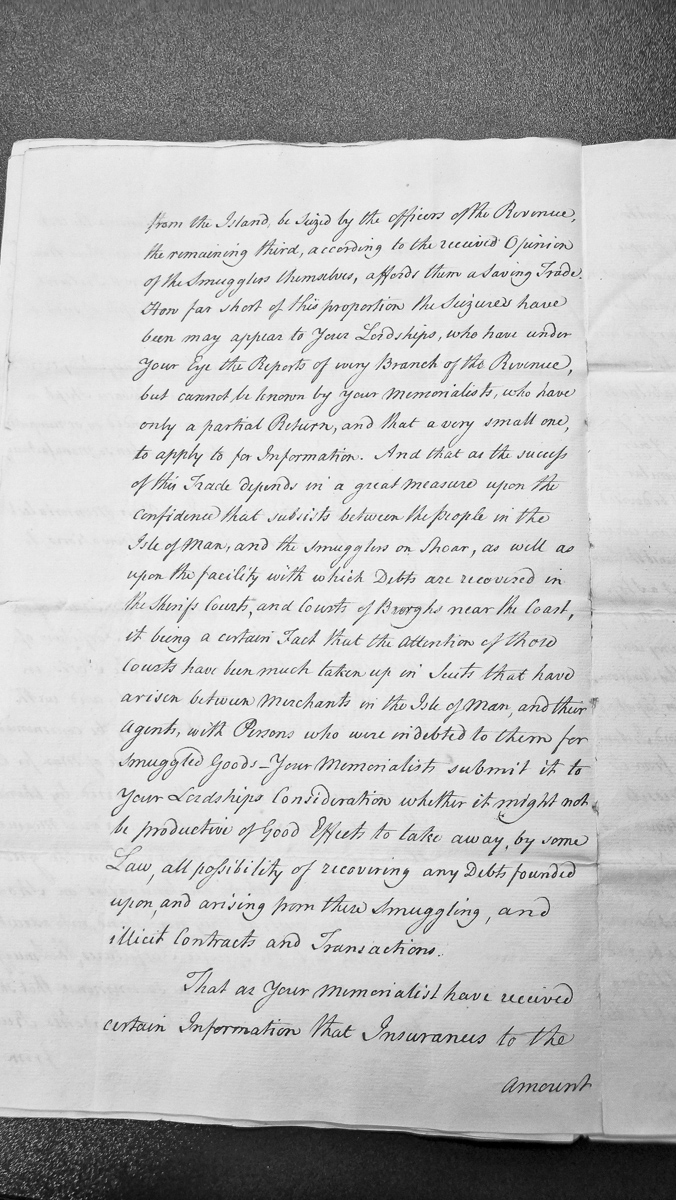 from the Island, be Seized by the officers of the Revenue,
the remaining third, according to the received Opinion
of the Smugglers themselves, affords them a Saving Trade.
How far short of this proportion the Seizures have
been may appear to Your Lordships, who have under
Your Eye the Reports of every Branch of the Revenue,
but cannot be known by your Memorialists, who have
only a partial Return, and that a very small one,
to apply to for Information. And that as the success
of this Trade depends in a great measure upon the
confidence that subsists between the people in the
Isle of Man, and the Smugglers on Shoar, as well as
upon the facility with which Debts are recovered in
the Sheriff Courts, and Courts of Burghs near the Coast,
it being a certain Fact that the attention of those
Courts have been much taken up in Suits that have
arisen between Merchants in the Isle of Man, and their
Agents, with Persons who were indebted to them for
Smuggled Goods – Your Memorialists submit it to
Your Lordships Consideration whether it might not
be productive of Good Effects to take away, by some
Law, all possibility of recovering any Debts founded
upon, and arising from these Smuggling, and
illicit Contracts and Transactions.
That as Your Memorialist have received
certain Information that Insurances to the
Amount